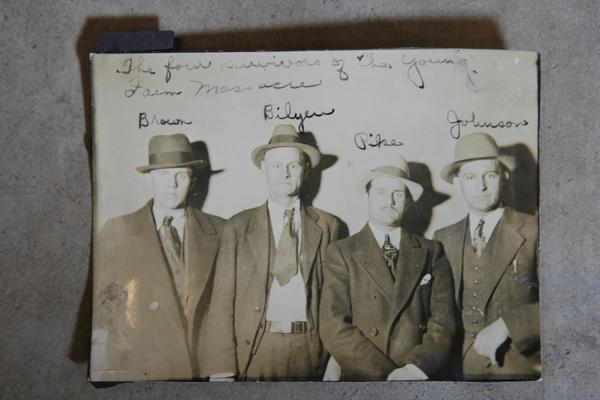 The four survivors of the Young
Farm Massacre
Brown
Bilyeu
Pike
Johnson